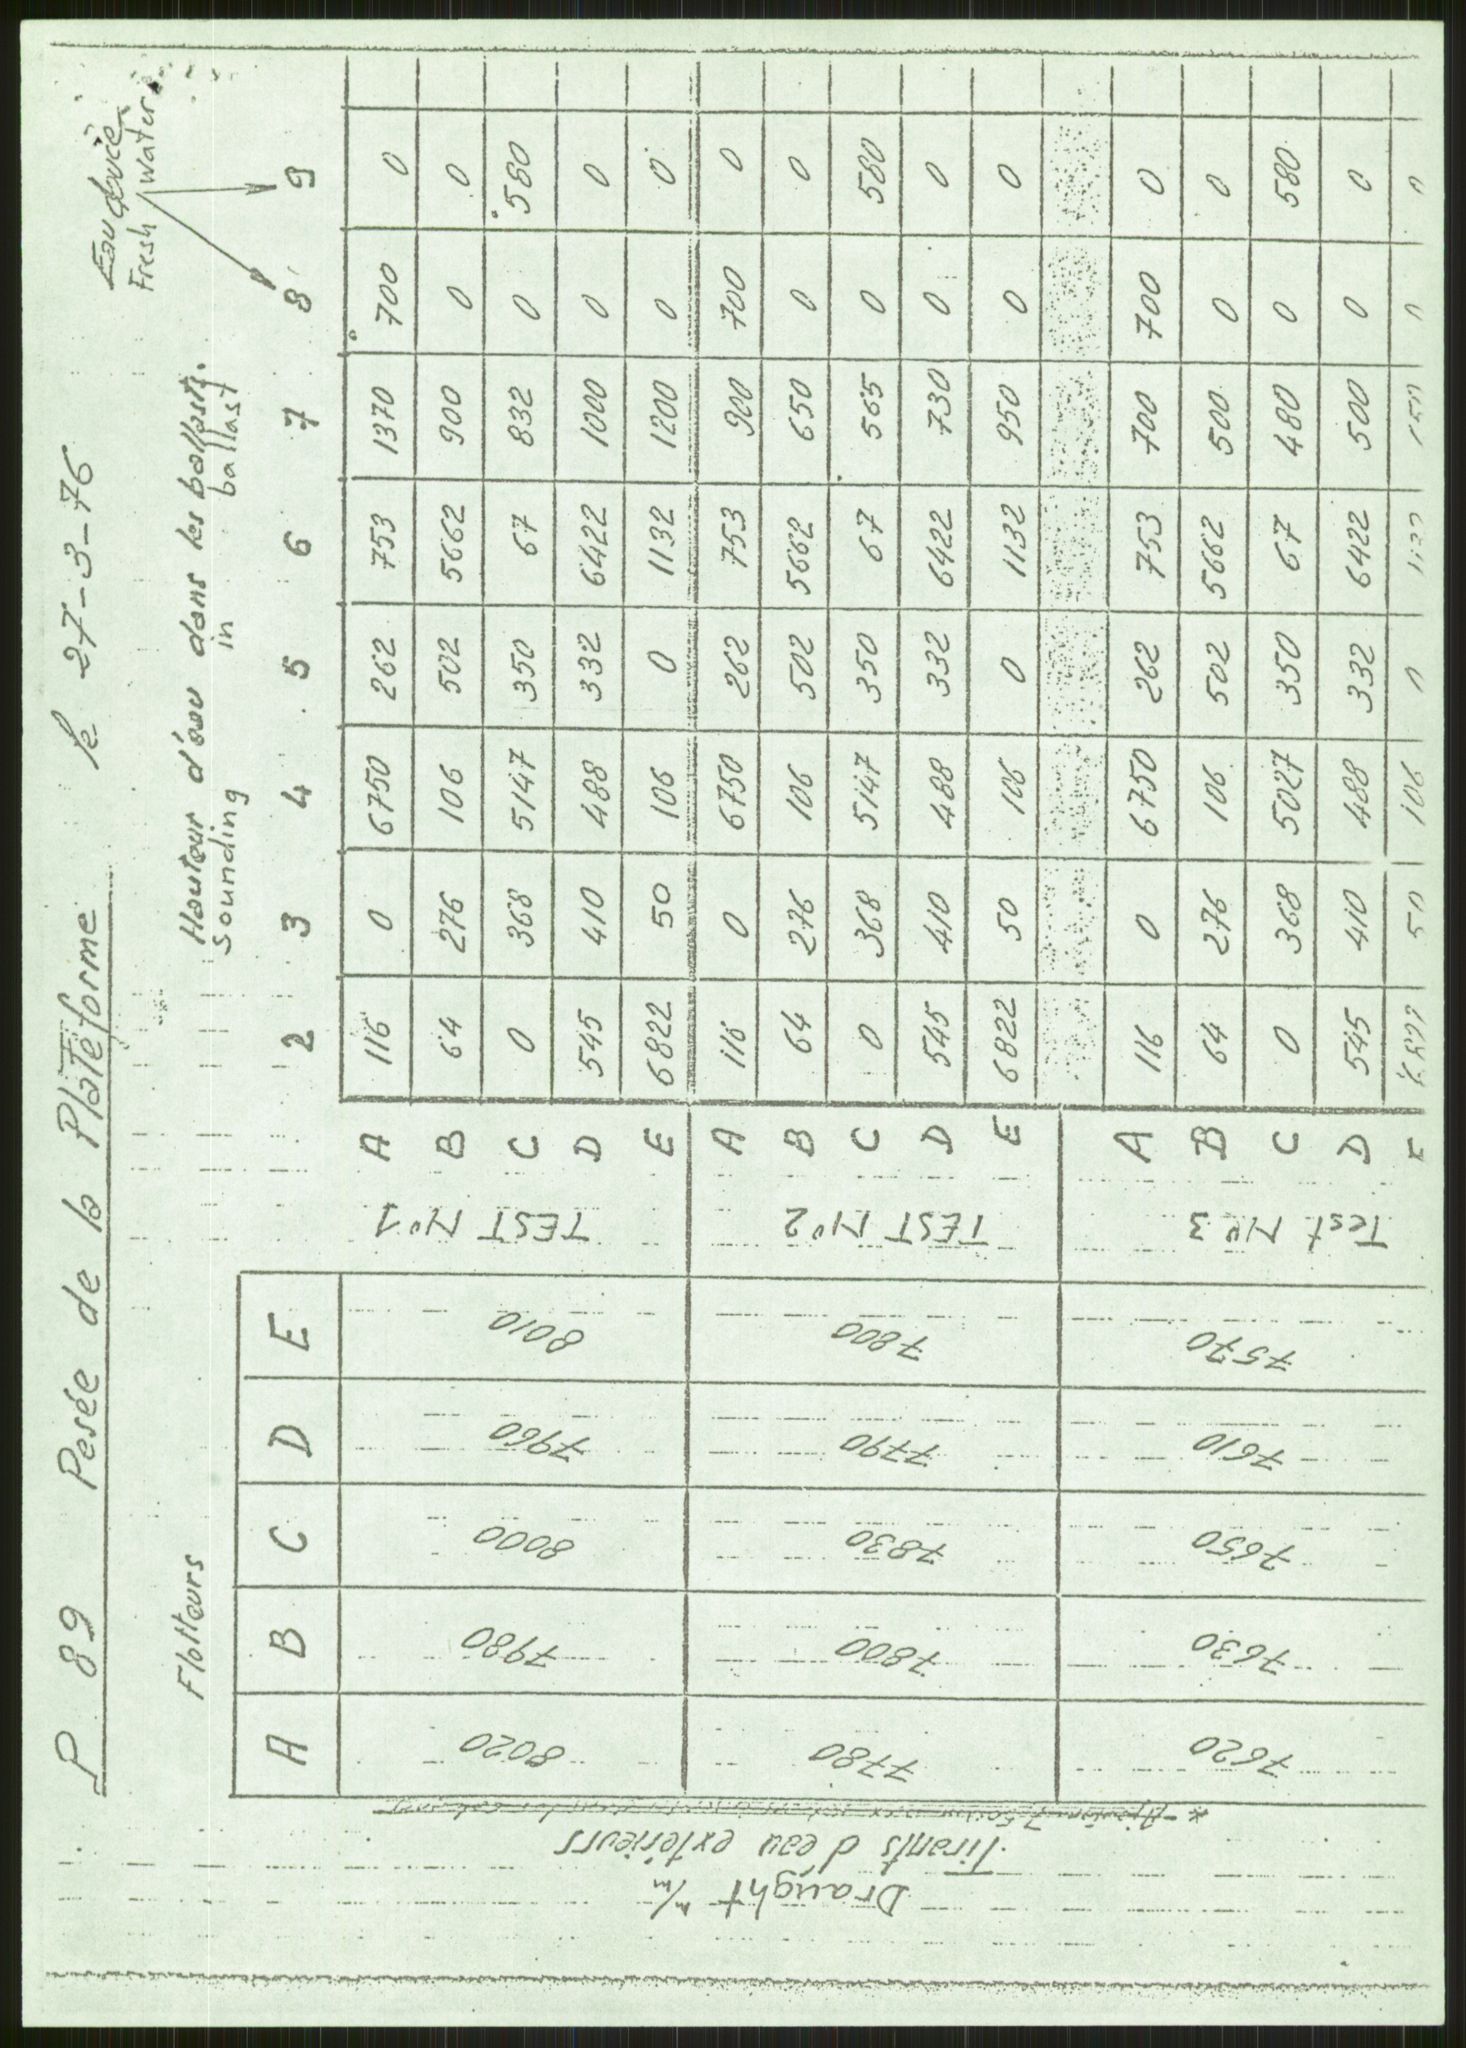 P 89 Pesée de la Plateforme le 27-3-76
Eau douce
Fresh water
Flotteurs
Hauteur d'eau dans les ballasts.
Sounding in ballast
A B C D E
2 3 4 5 6 7 8 9
Draught m/m
Tirants d'eau extérieurs
8020 7980 8000 7960 8010
TEST N°1
A 116 0 6750 262 753 1370 700 0
B 64 276 106 502 5662 900 0 0
C 0 368 5147 350 67 832 0 580
D 545 410 488 332 6422 1000 0 0
E 6822 50 106 0 1132 1200 0 0
7780 7800 7830 7790 7800
TEST N°2
A 116 0 6750 262 753 900 700 0
B 64 276 106 502 5662 650 0 0
C 0 368 5147 350 67 565 0 580
D 545 410 488 332 6422 730 0 0
E 6822 50 106 0 1132 950 0 0
7620 7630 7650 7610 7570
Test N° 3
A 116 0 6750 262 753 700 700 0
B 64 276 106 502 5662 500 0 0
C 0 368 5027 350 67 480 0 580
D 545 410 488 332 6422 500 0 0
50 106 0 0 0